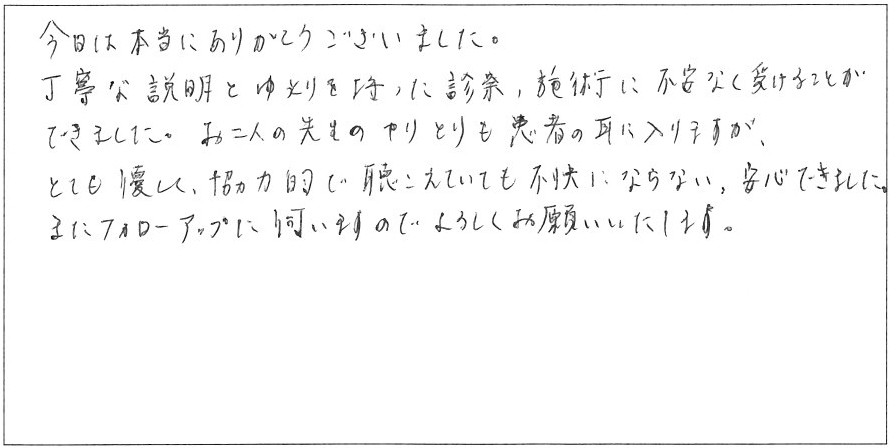 今日は本当にありがとうございました。
丁寧な説明とゆとりを持った診察，施術に不安なく受けることが
できました。お二人の先生のやりとりも患者の耳に入りますが、
とても優しく、協力的で聴こえていても不快にならない，安心できました。
またフォローアップに伺いますのでよろしくお願いいたします。